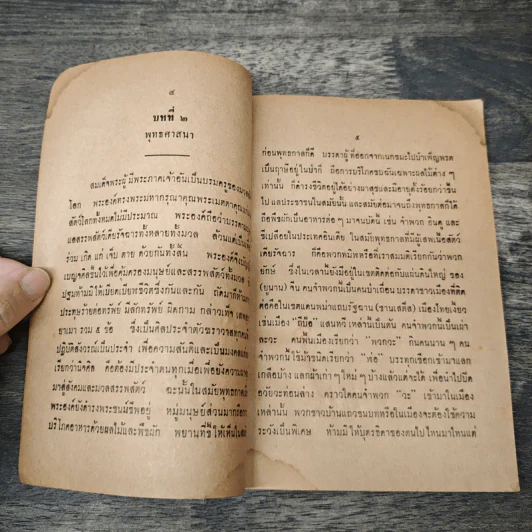 ๔
บทที่ ๒
พุทธศาสนา
สมเด็จพระผู้มีพระภาคเจ้าอันเป็นบรมครูของ
โลก พระองค์ทรงพระมหากรุณาคุณพระเมตตาคุณ
สัตว์โลกทั้งหมดไม่มีประมาณ พระองค์ถือว่าบรรดา
และสรรพสัตว์เดียรัจฉานทั้งหลายทั้งมวล ล้วนแต่เป็น
ร่วม เกิด แก่ เจ็บ ตาย ด้วยกันทั้งสิ้น พระองค์จึง
เบญจศีลขึ้นไว้เพื่อคุ้มครองมนุษย์และสรรพสัตว์ทั้งมวล
ปฐมห้ามมิให้เบียดเบียฬชีวิตซึ่งกันและกัน ถัดมาก็ห้าม
ประทุษร้ายต่อทรัพย์ มีลักทรัพย์ ผิดกาม กล่าวเท็จ
ยาเมา รวม ๕ ข้อ ซึ่งเป็นศีลประจำตัวฆราวาส
ปฏิบัติสังวรณ์เป็นประจำ เพื่อความสันติและเป็นมงคล
เรียกว่านิจศีล คือต้องมีประจำตนทุกเมื่อเพื่อยังความ
มาสู่สังคมและมวลสรรพสัตว์ ฉะนั้นในสมัยพุทธกาล
พระองค์ยังดำรงพระชนม์ชีพอยู่ หมู่มนุษย์ส่วนมาก
บริโภคอาหารด้วยผลไม้และพืชผัก พยานที่ชี้ให้เห็น
๕
ก่อนพุทธกาลก็ดี บรรดาผู้ที่ออกจากเนกขมะไปบำเพ็ญพรต
เป็นฤาษีอยู่ในป่าก็ดี ถือการบริโภคขบฉันเฉพาะผลไม้ต่าง ๆ
เท่านั้น ก็ดำรงชีวิตอยู่ได้อย่างผาสุขและมีอายุตั้งร้อยกว่าขึ้น
ไป และประชาชนในสมัยนั้น และสมัยต่อมาจนถึงพุทธกาลก็ได้
ถือพืชผักเป็นอาหารต่อ ๆ มาจนบัดนี้ เช่น จำพวก ฮินดู และ
ชีเปลือยในประเทศอินเดีย ในสมัยพุทธกาลที่มีผู้เสพเนื้อสัตว์
เดียรัจฉาน ก็คือพวกมิพพหรือที่เราสมมติเรียกกันว่าจำพวก
ยักษ์ ซึ่งในเวลานี้ยังมีอยู่ในเขตติดต่อกับแผ่นดินใหญ่ ของ
(ยูนาน) จีน คนจำพวกนี้เป็นคนป่าเถื่อน บางครั้งชาวเมืองที่ติด
ต่อคือในเขตแดนพม่าแถบรัฐฉาน (ชานเสตส์) เมืองไทยเงี้ยว
เช่นเมือง แสนหวี เหล่านี้เป็นต้น คนจำพวกนี้เป็นเผ่า
ละว้ะ คนพื้นเมืองเรียกว่า “พวกวะ” กินคนนาน ๆ คน
จำพวกนี้ เรียกว่า “พ่อ” บรรทุกเชือกเข้ามาแลก
เกลือบ้าง แลกผ้าเก่า ๆ ใหม่ ๆ บ้างแล้วแต่จะได้ เพื่อนำไปปิด
อวัยวะท่อนล่าง คราวใดคนจำพวก “วะ” เข้ามาในเมือง
เหล่านั้น พวกชาวบ้านแถวชนบทหรือในเมืองจะต้องใช้ความ
ระวังเป็นพิเศษ ห้ามมิให้บุตรธิดาของตนไปไหนมาไหนแต่